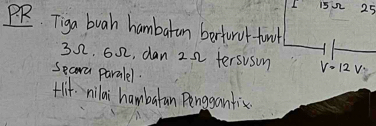 PR. Tiga buah hambatan berturut-turut
3Ω. 6Ω, dan 2Ω tersusun
Secara paralel.
Hit. nilai hambatan Penggantix.
I 15Ω 25
V = 12 V